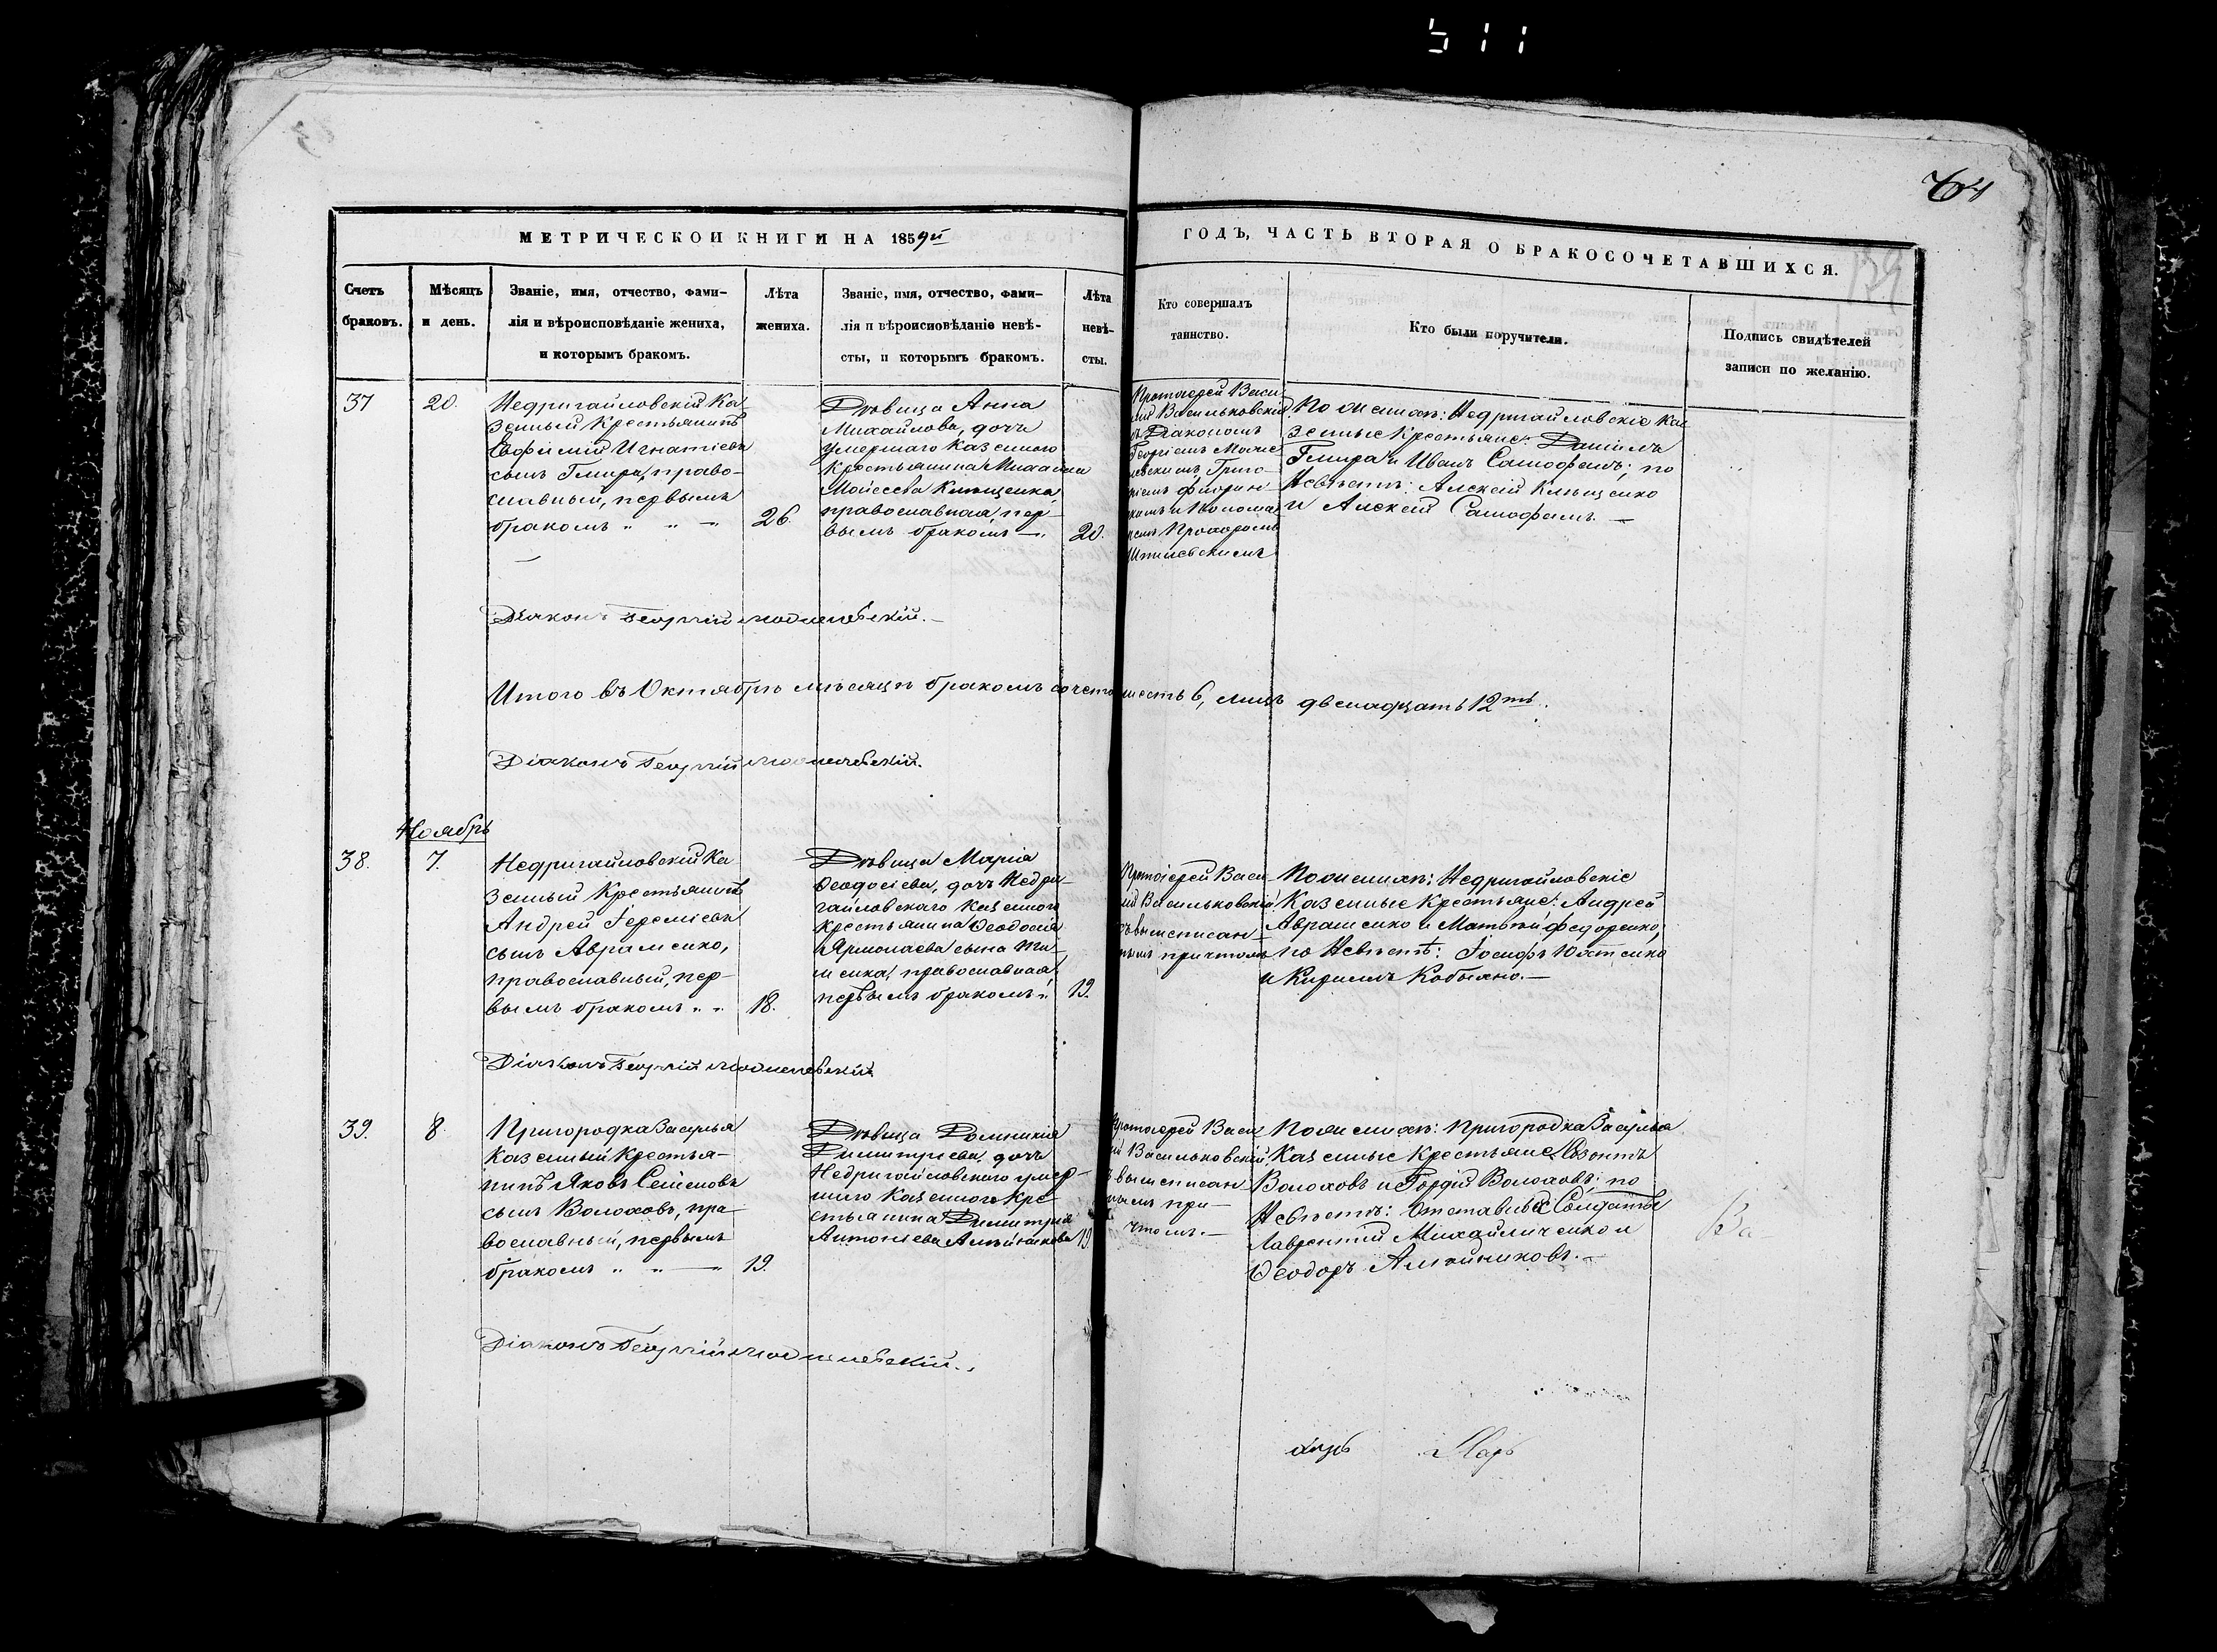 511
64
МЕТРИЧЕСКОЙ КНИГИ НА 1859й
ГОДЪ, ЧАСТЬ ВТОРАЯ О БРАКОСОЧЕТАВШИХСЯ.
Счетъ
браковъ.
Мѣсяцъ
и день.
Званіе, имя, отчество, фами-
лія и вѣроисповѣданіе жениха,
и которымъ бракомъ.
Лѣта
жениха.
Званіе, имя, отчество, фами-
лія и вѣроисповѣданіе невѣ-
сты, и которымъ бракомъ.
Лѣта
невѣ-
сты.
Кто совершалъ
таинство.
Кто были поручители.
Подпись свидѣтелей
записи по желанію.
37
20.
Недригайловскій Ка
зенный Крестьянинъ
Евфимій Игнатіевъ
сынъ Гмиря, право-
славный, первымъ
бракомъ
26.
Дѣвица Анна
Михайлова, дочь
умершаго Казеннаго
Крестьянина Михаила
Моѵсеева Клищенка,
православная пер-
вымъ бракомъ
20.
Протоіерей Васи-
лій Васильковскій
съ Діакономъ
Георгіемъ
Григо-
ріемъ
и Понома
ремъ Прохоромъ
По женихѣ: Недригайловскіе Ка
зенные Крестьяне: Даніилъ
Гмиря и Иванъ Самофалъ; по
Невѣстѣ: Алексѣй Клищенко
и Алексѣй Самофалъ.
Діаконъ Георгій
Итого въ Октябрѣ мѣсяцѣ бракомъ сочета шесть 6, лицъ двенадцать 12ть.
Діаконъ Георгій
Ноябрь
38.
7.
Недригайловскій Ка
зенный Крестьянинъ
Андрей Іереміевъ
сынъ Авраменко,
православный, пер-
вымъ бракомъ
18.
Дѣвица Марія
Ѳеодосіева, дочь Недри-
гайловскаго Казеннаго
Крестьянина Ѳеодосія
Ярмолаева сына Ти-
шенка, православная,
первымъ бракомъ
19.
Протоіерей Васи-
лій Васильковскій
съ вышеписан-
нымъ причтомъ
По женихѣ: Недригайловскіе
Казенные Крестьяне: Андрей
Авраменко и Матвѣй Федоренко,
по Невѣстѣ: Іосифъ
и Кириллъ Кобыляко.
Діаконъ Георгій
39.
8
Пригородка Засулья
Казенный Крестья-
нинъ Яковъ Семеновъ
сынъ Волоховъ, пра-
вославный, первымъ
бракомъ
19.
Дѣвица Домникія
Димитріева, дочь
Недригайловскаго умер-
шаго Казеннаго Кре-
стьянина Димитрія
Антоніева
19.
Протоіерей Васи
лій Васильковскій
съ вышеписан-
нымъ при-
чтомъ.
По женихѣ: Пригородка Засулья
Казенные Крестьяне: Созонтъ
Волоховъ и Гордій Волоховъ; по
Невѣстѣ: Отставные Солдаты
Лаврентій Михайличенко и
Ѳеодоръ
Діаконъ Георгій
Ва